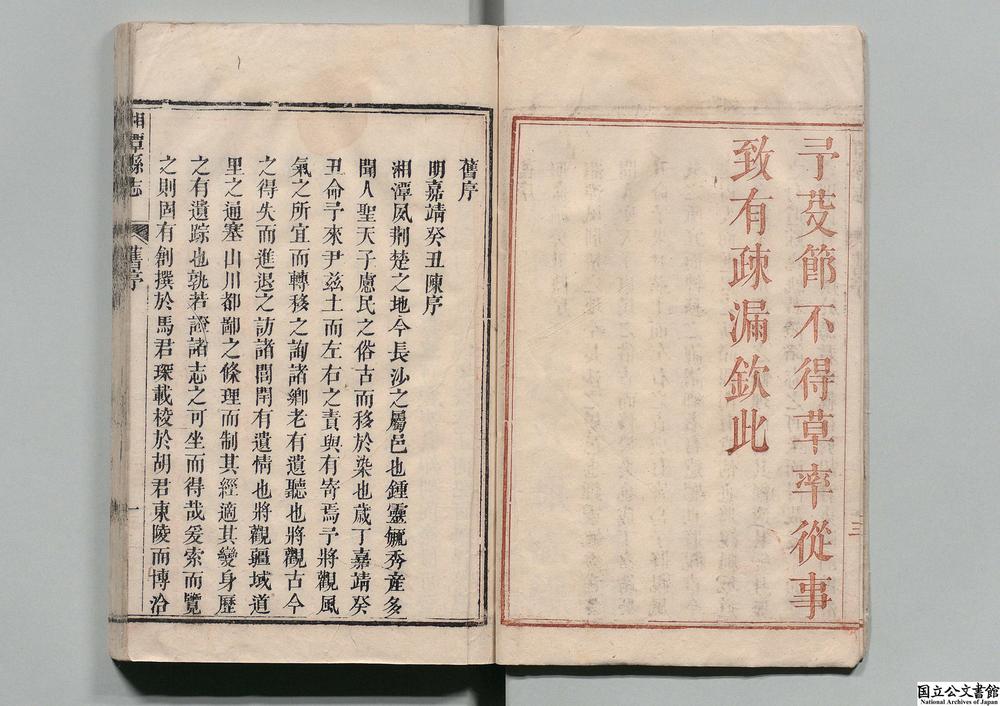 予芟節不得草率從事
致有疎漏欽此
三
舊序
明嘉靖癸丑陳序
湘潭夙荆楚之地今長沙之屬邑也鍾靈毓秀産多
聞人聖天子慮民之俗古而移於染也歲丁嘉靖癸
丑命予來尹兹土而左右之責與有寄焉予將觀風
氣之所宜而轉移之詢諸鄉老有遺聽也將觀古今
之得失而進退之訪諸閭閈有遺情也將觀疆域道
里之通塞山川都鄙之條理而制其經適其變身歷
之有遺踪也孰若證諸志之可坐而得哉爰索而覽
之則固有創撰於馬君琛載棱於胡君東陵而博洽
湘潭縣志
舊序
一
国立公文書館
National Archives of Japan